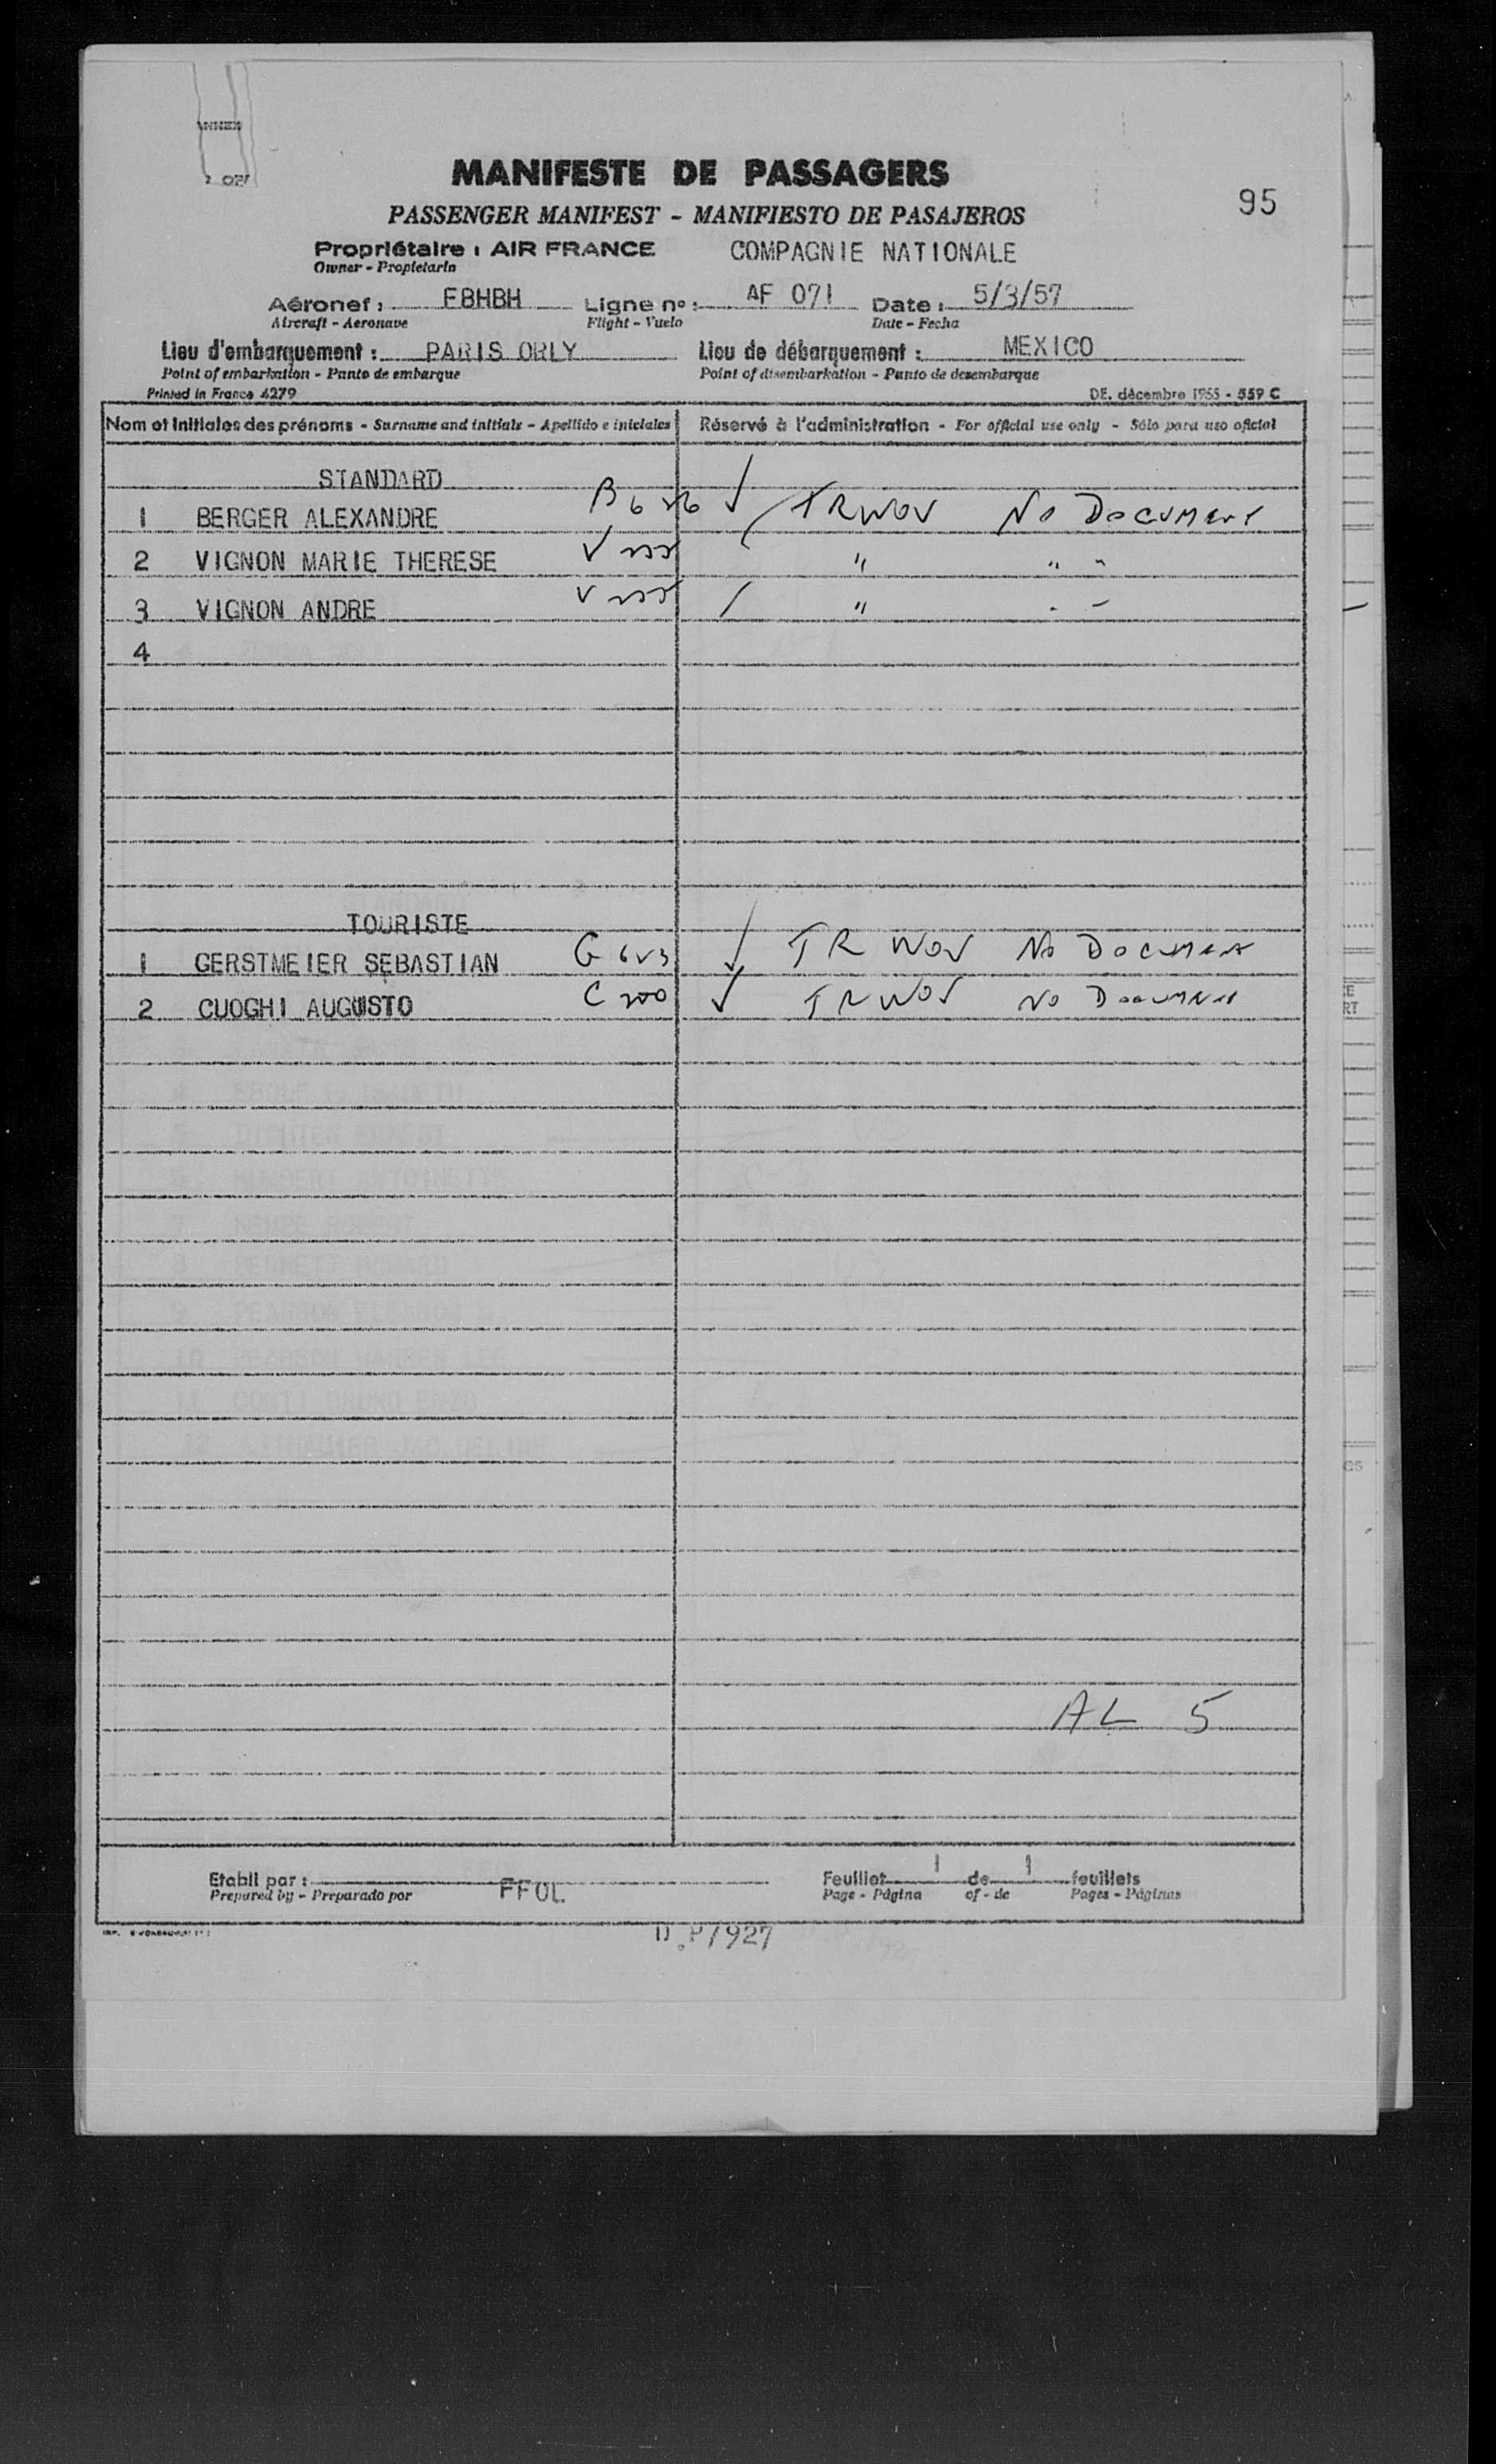 MANIFESTE DE PASSAGERS
95
PASSENGER MANIFEST - MANIFIESTO DE PASAJEROS
Propriétaire : AIR FRANCE COMPAGNIE NATIONALE
Owner - Propietario
Aéronef : FBHBH Ligne n° : AF 071 Date : 5/3/57
Aircraft - Aeronave Flight - Vuelo Date - Fecha
Lieu d'embarquement : PARIS ORLY Lieu de débarquement : MEXICO
Point of embarkation - Punto de embarque Point of disembarkation - Punto de desembarque
Printed in France 4279 DE. décembre 1955 - 559 C
Nom et initiales des prénoms - Surname and initials - Apellido e iniciales Réservé à l'administration - For official use only - Sólo para uso oficial
STANDARD
1 BERGER ALEXANDRE TRWOV No Document
2 VIGNON MARIE THERESE " " "
3 VIGNON ANDRE "
4
TOURISTE
1 GERSTMEIER SEBASTIAN TR WOV No Document
2 CUOGHI AUGUSTO C 200 TRWOV No Document
AL 5
Etabli par : FFOL Feuillet 1 de 1 feuillets
Prepared by - Preparado por Page - Página of - de Pages - Páginas
D.P/927